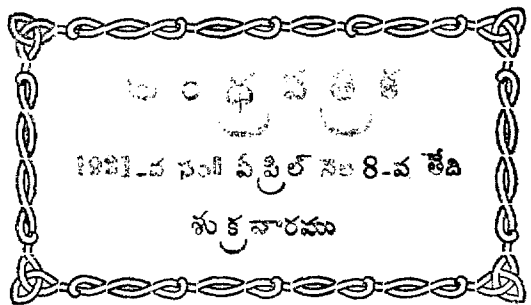 ఆంధ్రపత్రిక
1921-వ సం॥ ఏప్రిల్ నెల 8-వ తేది
శుక్రవారము